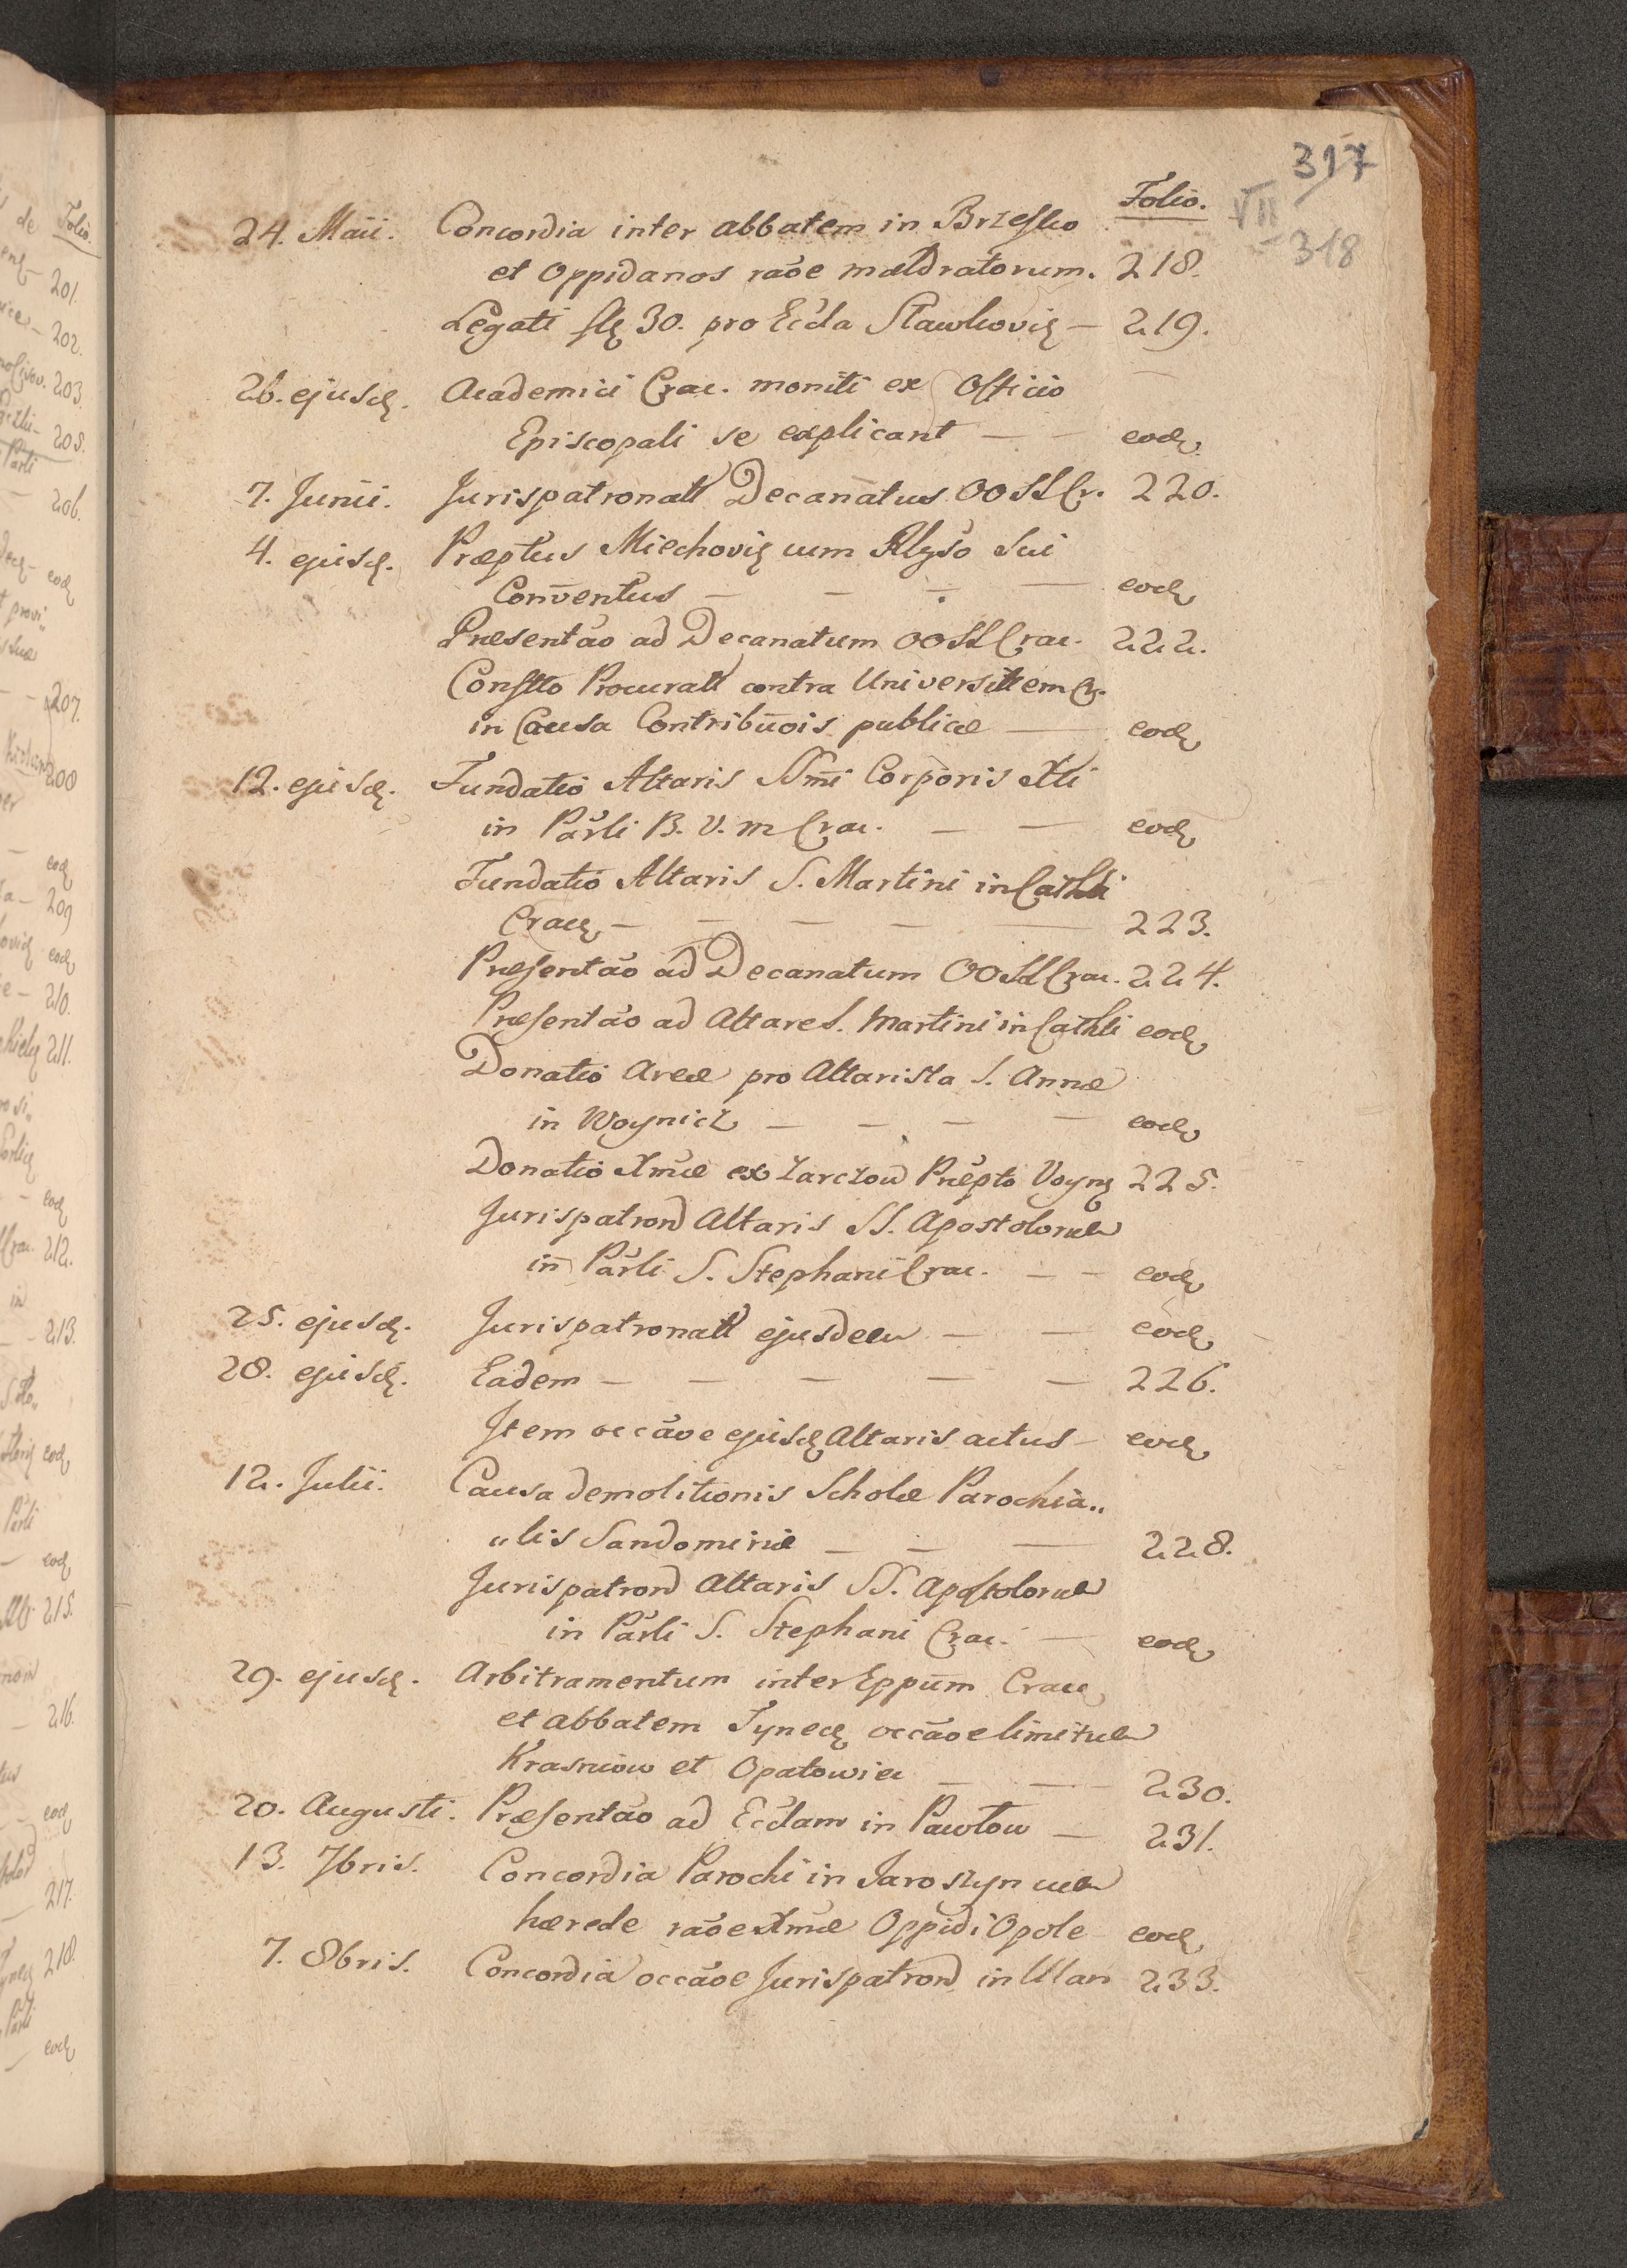 317
VII
318
Folio.
24. Maii. Concordia inter abbatem in Brzesko
et Oppidanos raõe mældratorum. 218.
Legati 30. pro Eccla Sławkovię — 219.
26. ejusd. Academici Crac. moniti ex Officio
Episcopali se explicant — — eod
7. Junii. Jurispatronatt Decanatus OO SS Cr. 220.
4. ejusd. Præptus Miechovię cum Rlgso sui
Conventus — — — — eod
Præsentão ad Decanatum OOSS Crac. 222.
Constto Procuratt contra Universittem Cr.
in Causa Contribuõis publicæ — eod
12. ejusd. Fundatio Altaris SSmi Corporis Xti
in Parli B. V. M Crac. — — eod
Fundatio Altaris S. Martini in Cathli
Crac — — — — — 223.
Præsentão ad Decanatum OOSS Crac. 224.
Præsentão ad Altare S. Martini in Cathli eod
Donatio Areæ pro Altarista S. Annæ
in Woynicz — — — — eod
Donatio Xmæ ex Zarczow Præpto Voyn 225.
Jurispatron Altaris SS. Apostolorum
in Parli S. Stephani Crac. — — eod
25. ejusd. Jurispatronatt ejusdem — — eod
28. ejusd. Eadem — — — — — 226.
Item occãoe ejusd Altaris actus — eod
12. Julii. Causa demolitionis Scholæ Parochia„
„lis Sandomiriæ — — — 228.
Jurispatron Altaris SS. Apostolorum
in Parli S. Stephani Crac. — eod
29. ejusd. Arbitramentum inter Eppum Crac
et abbatem Tynec occãoe limitum
Krasniow et Opatowiec — — 230.
20. Augusti. Præsentão ad Ecclam in Pawłow — 231.
13. 7bris. Concordia Parochi in Jaroszyn cum
hærede raõe Xmæ Oppidi Opole eod
7. 8bris. Concordia occãoe Jurispatron in Ulan 233.
Folio.
201.
202.
203.
205.
206.
eod
207.
208
eod
209
eod
210.
211.
eod
212.
213.
eod
eod
215.
216.
eod
217.
218.
eod